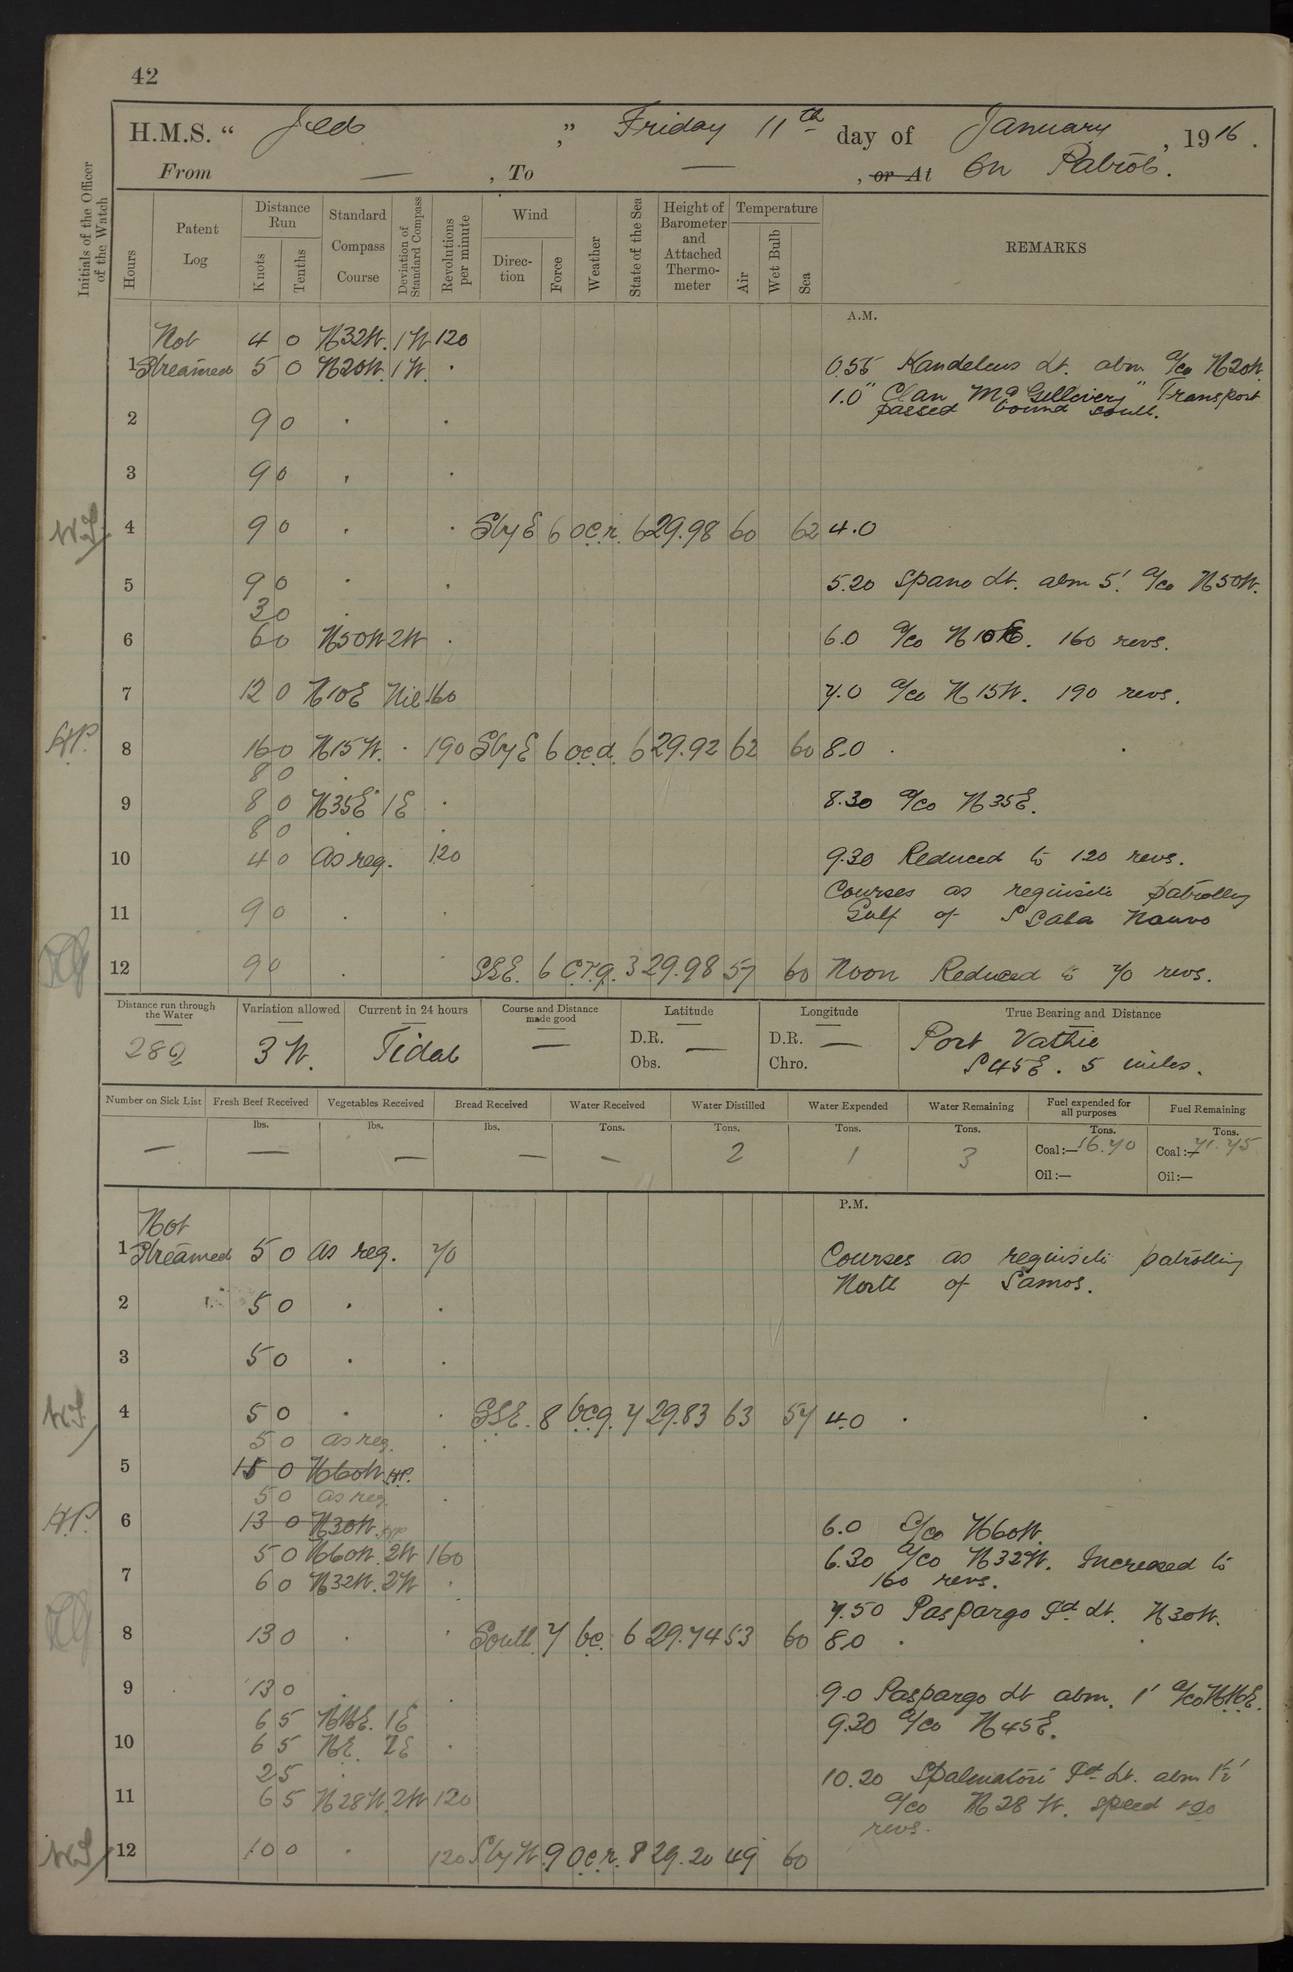 42
H.M.S. “ Jed ” Friday 11th day of January, 1916.
From — , To — , or At On Patrol.
Initials of the Officer of the Watch
Hours | Patent Log | Distance Run Knots Tenths | Standard Compass Course | Deviation of Standard Compass | Revolutions per minute | Wind Direction Force | Weather | State of the Sea | Height of Barometer and Attached Thermometer | Temperature Air Wet Bulb Sea | REMARKS
A.M.
Not 4 0 N32W. 1W 120
1 Streamed 5 0 N20W. 1W. . 0.55 Kandeleus Lt. abm a/co N20W.
1.0 "Clan McGillivery" Transport
passed bound south.
2 9 0 . .
3 9 0 . .
W.S. 4 9 0 . . SbyE 6 o.c.r. 6 29.98 60 62 4.0
5 9 0 . . 5.20 Spano Lt. abm 5' a/co N50W.
3 0 .
6 6 0 N50W 2W . 6.0 a/co N10E. 160 revs.
7 12 0 N10E Nil 160 7.0 a/co N15W. 190 revs.
H.P. 8 16 0 N15W. . 190 SbyE 6 o.c.d. 6 29.92 62 60 8.0 . .
8 0 .
9 8 0 N35E 1E . 8.30 a/co N35E.
8 0 . .
10 4 0 As req. 120 9.30 Reduced to 120 revs.
Courses as requisite patrolling
11 9 0 . . Gulf of Scala Nouvo
12 9 0 . . SSE. 6 c.r.q. 3 29.98 57 60 Noon Reduced to 70 revs.
Distance run through the Water | Variation allowed | Current in 24 hours | Course and Distance made good | Latitude | Longitude | True Bearing and Distance
282 | 3W. | Tidal | — | D.R. — Obs. | D.R. — Chro. | Port Vathie
S45E. 5 miles.
Number on Sick List | Fresh Beef Received | Vegetables Received | Bread Received | Water Received | Water Distilled | Water Expended | Water Remaining | Fuel expended for all purposes | Fuel Remaining
lbs. lbs. lbs. Tons. Tons. Tons. Tons. Tons. Tons.
— — — — — 2 1 3 Coal:— 16.70 Coal:— 71.75
Oil:— Oil:—
P.M.
Not
1 Streamed 5 0 As req. 70 Courses as requisite patrolling
North of Samos.
2 5 0 . .
3 5 0 . .
W.S. 4 5 0 . . SSE. 8 b.c.q. 7 29.83 63 57 4.0 . .
5 0 as req. .
5 15 0 N60W. H.P.
5 0 as req. .
H.P. 6 13 0 N30W. H.P. 6.0 a/co N60W.
5 0 N60W. 2W 160 6.30 a/co N32W. Increased to
7 6 0 N32W. 2W . 160 revs.
7.50 Paspargo Id Lt. N30W.
8 13 0 . . South 7 b.c. 6 29.74 53 60 8.0 . .
9 13 0 . . 9.0 Paspargo Lt abm. 1' a/co NNE.
6 5 NNE. 1E 9.30 a/co N45E.
10 6 5 NE. 2E .
2 5 . 10.20 Spalmatori Id Lt. abm 1½'
11 6 5 N28W. 2W 120 a/co N28W. speed 120
revs.
W.S. 12 10 0 . 120 SbyW. 9 o.c.r. 8 29.20 49 60